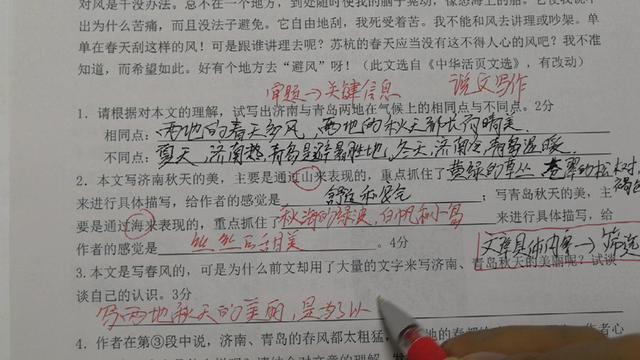 对风是干没办法。总不在一个地方，到处随时使我的脑子晃动，像怒海上的船。它使我说不
出为什么苦痛，而且没法子避免。它自由地刮，我死受着苦。我不能和风去讲理或吵架。单
单在春天刮这样的风！可是跟谁讲理去呢？苏杭的春天应当没有这不得人心的风吧？我不准
知道，而希望如此。好有个地方去“避风”呀！（此文选自《中华活页文选》，有改动）
审题→关键信息 说文写作
1. 请根据对本文的理解，试写出济南与青岛两地在气候上的相同点与不同点。2分
相同点：两地的春天多风，两地的秋天都长而晴美.
不同点：夏天，济南热，青岛是避暑胜地，冬天，济南冷，青岛温暖.
2. 本文写济南秋天的美，主要是通过山来表现的，重点抓住了黄绿的草丛 苍翠的松树
来进行具体描写，给作者的感觉是 舒适和安全 ；写青岛秋天的美，主
要是通过海来表现的，重点抓住了秋海的绿浪，白帆和小岛 来进行具体描写，给
作者的感觉是 。4分
文章具体内容→筛选
3. 本文是写春风的，可是为什么前文却用了大量的文字来写济南、青岛秋天的美丽呢？试谈
谈自己的认识。3分
写两地秋天的美丽，是为了以
4. 作者在第③段中说，济南、青岛的春风都太粗猛，